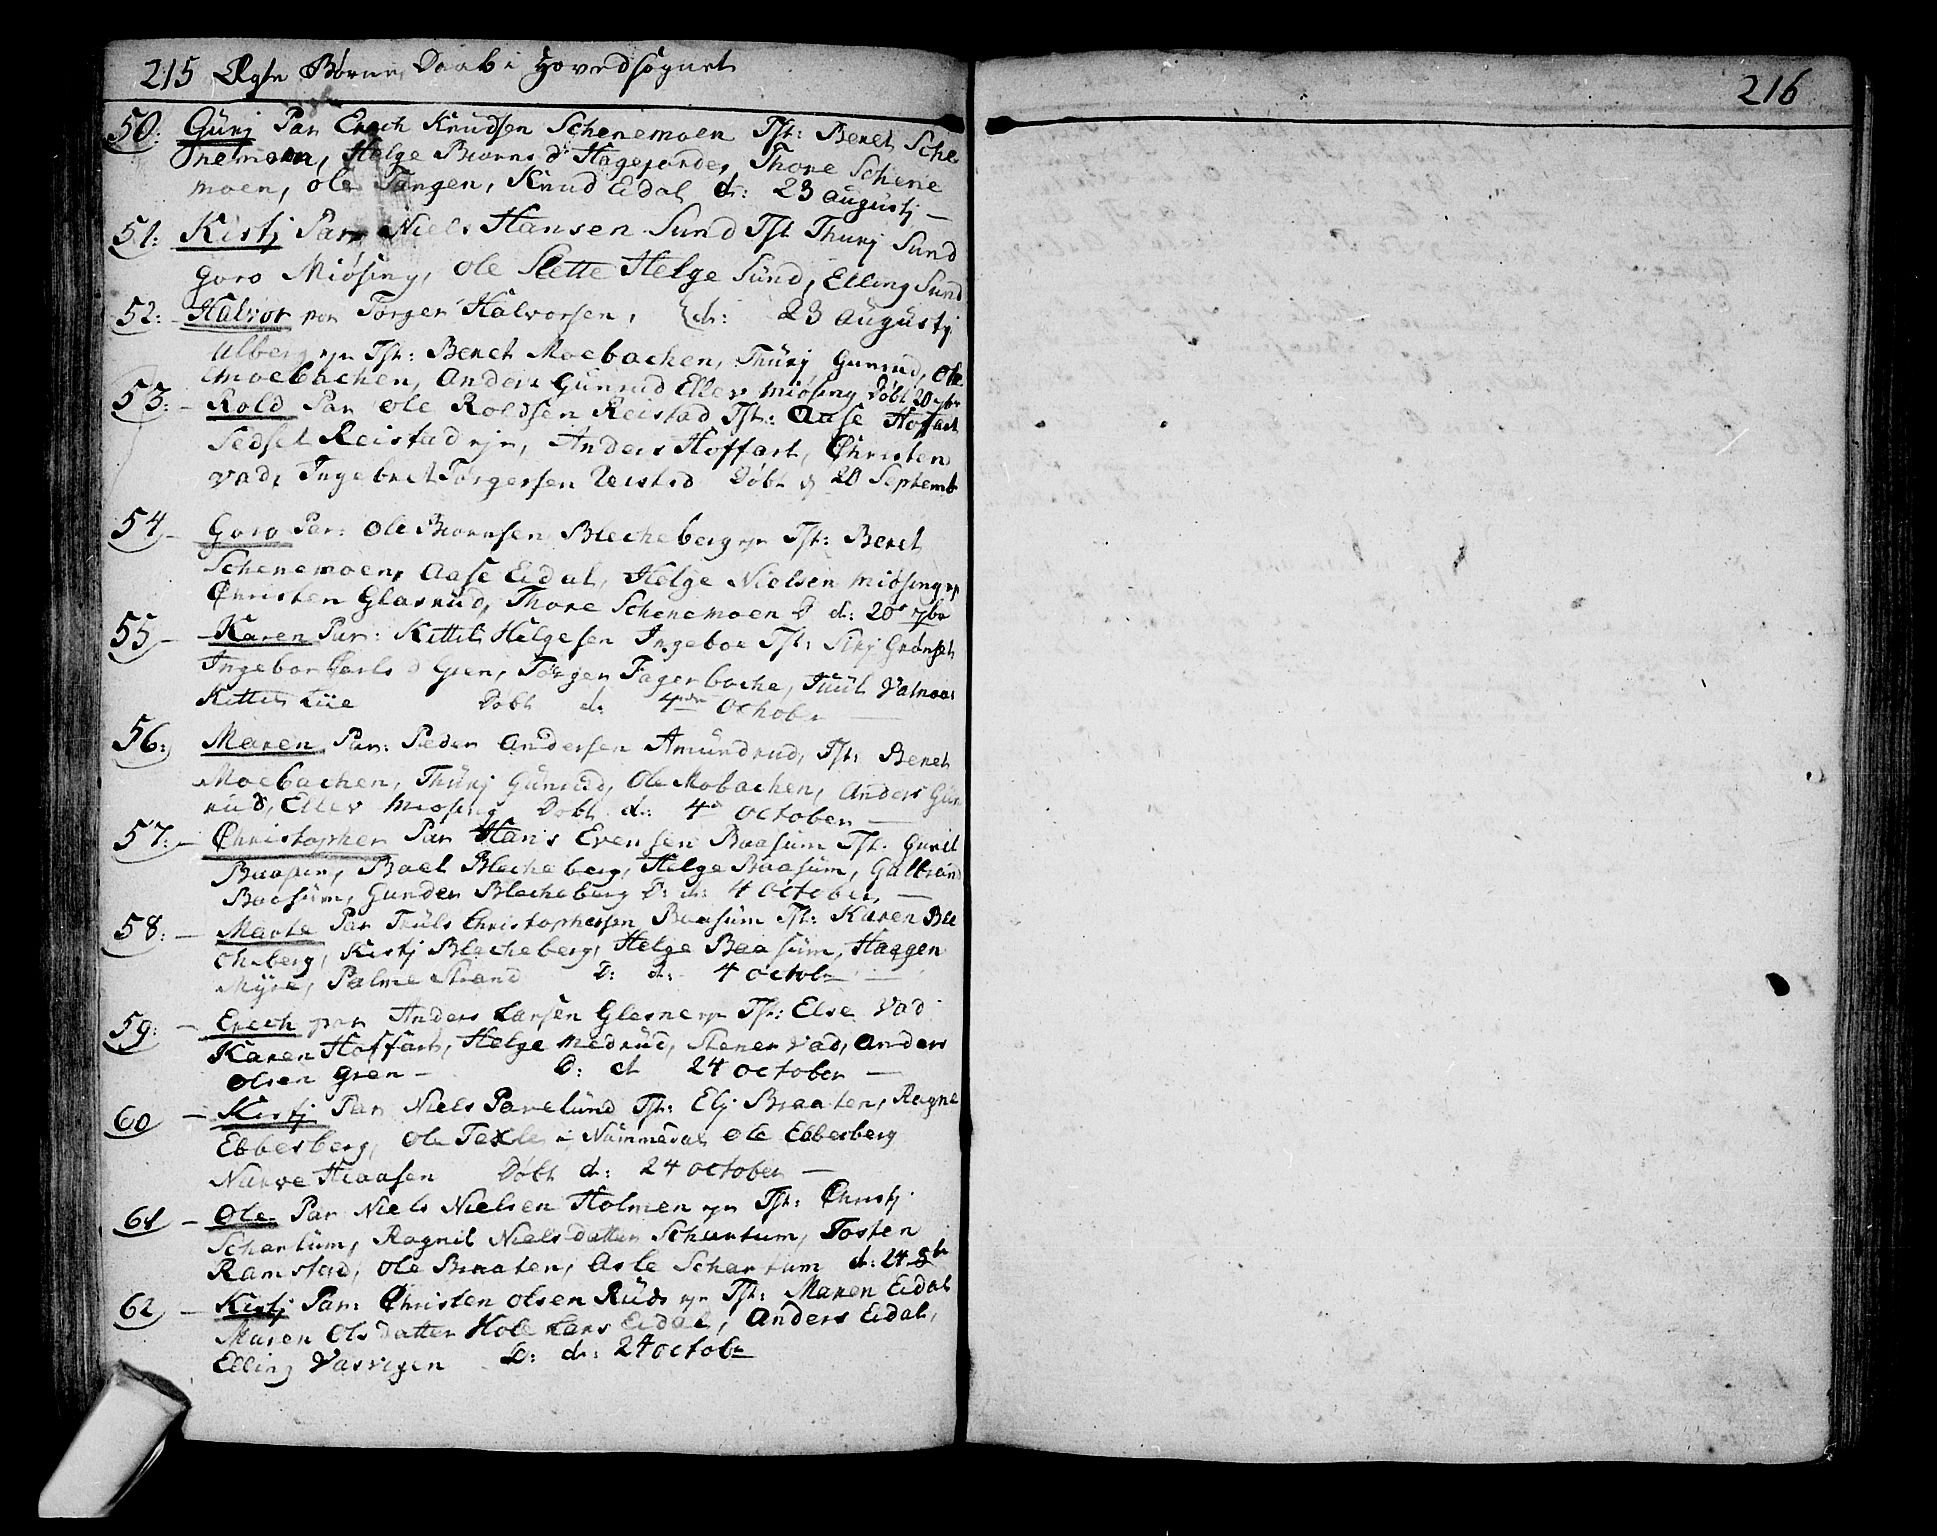 215 Ægte Børnes Daab i Hovedsognet
50: Gurj Par Erech Knudsen Schenemoen Tst: Beret Sche
nemoen, Helge Biørns d: Hagejordet, Thore Schene
moen, Ole Tangen, Knud Eidal d: 23 augustj —
51: Kistj Par Niels Hansen Sund Tst Thurj Sund
Goro Miøsing, Ole Slette Helge Sund, Elling Sund
52: Halvor par Jørgen Halvorsen, d: 23 augustj
Ulberg ejer Tst: Beret Moebachen, Thurj Gunrud, Ole
Moebachen, Anders Gunrud Ellev Miøsing Døbt 20 7br
53: – Rold Par Ole Roldsen Reistad Tst: Aase Hoffart
Sedsel Reistad ejer, Anders Hoffart, Christen
Vad, Ingebret Jørgersen Reistad Døbt d 20 Septemb
54 – Goro Par: Ole Biørnsen Blecheberg ejer Tst: Beret
Schenemoen, Aase Eidal, Helge Nielsen Miøsing ejer
Christen Glasrud, Thore Schenemoen D d: 20 7br
55 – Karen Par: Kittil Helgesen Ingeboe Tst: Sirj Grønset
Ingebor Carls d Gren, Jørgen Fagerbache, Juul Valnaas
Kittil Lije Døbt d: 4de Octobr —
56: Maren Par: Peder Andersen Amundrud, Tst: Beret
Moebachen, Thurj Gunrud, Ole Mobachen, Anders Gun
rud, Ellev Miøsing Døbt d: 4de October —
57: – Christopher Par Hans Evensen Baasum Tst. Guril
Baasum, Boel Blecheberg, Helge Baasum, Gulbrand
Baasum, Gunder Blecheberg D: d: 4 October, —
58: – Marte Par Truls Christophersen Baasum Tst: Karen Ble
cheberg, Kistj Blecheberg, Helge Baasum, Haagen
Myre, Palme Strand D: d: 4 Octobr —
59: – Erech par Anders Larsen Glesne ejer Tst: Else Vad
Karen Hoffart, Helge Medrud, Stener Vad, Anders
Olsen Gren – D: d 24 October —
60 – Kistj Par Niels Pavelund Tst: Elj Braaten, Ragne
Ebbesberg, Ole Texle i Nummedal Ole Ebbesberg
Narve Hraasen Døbt d: 24 October —
61 – Ole Par Niels Nielsen Holmen ejer Tst: Christj
Schartum, Ragnil Nielsdatter Schartum, Tosten
Ramstad, Ole Braaten, Asle Schartum d: 24 8br
62 – Kistj Par: Christen Olsen Ruds ejer Tst: Maren Eidal
Maren Olsdatter Hole Lars Eidal, Anders Eidal,
Elling Vasvigen D: d: 24 Octobr
216